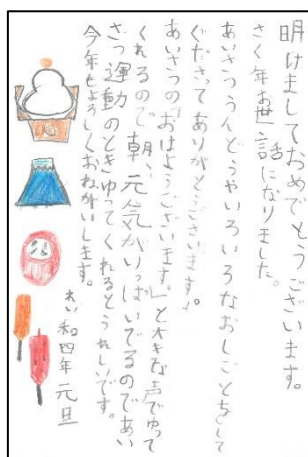 明けましておめでとうございます。
さく年お世話になりました。
あいさつうんどうやいろいろなおしごとをして
くださってありがとうございます。
あいさつの「おはようございます。」と大きな声でゆって
くれるので朝、元気がいっぱいでるのであい
さつ運動のときゆってくれるとうれしいです。
今年もよろしくおねがいします。
れい和四年元旦